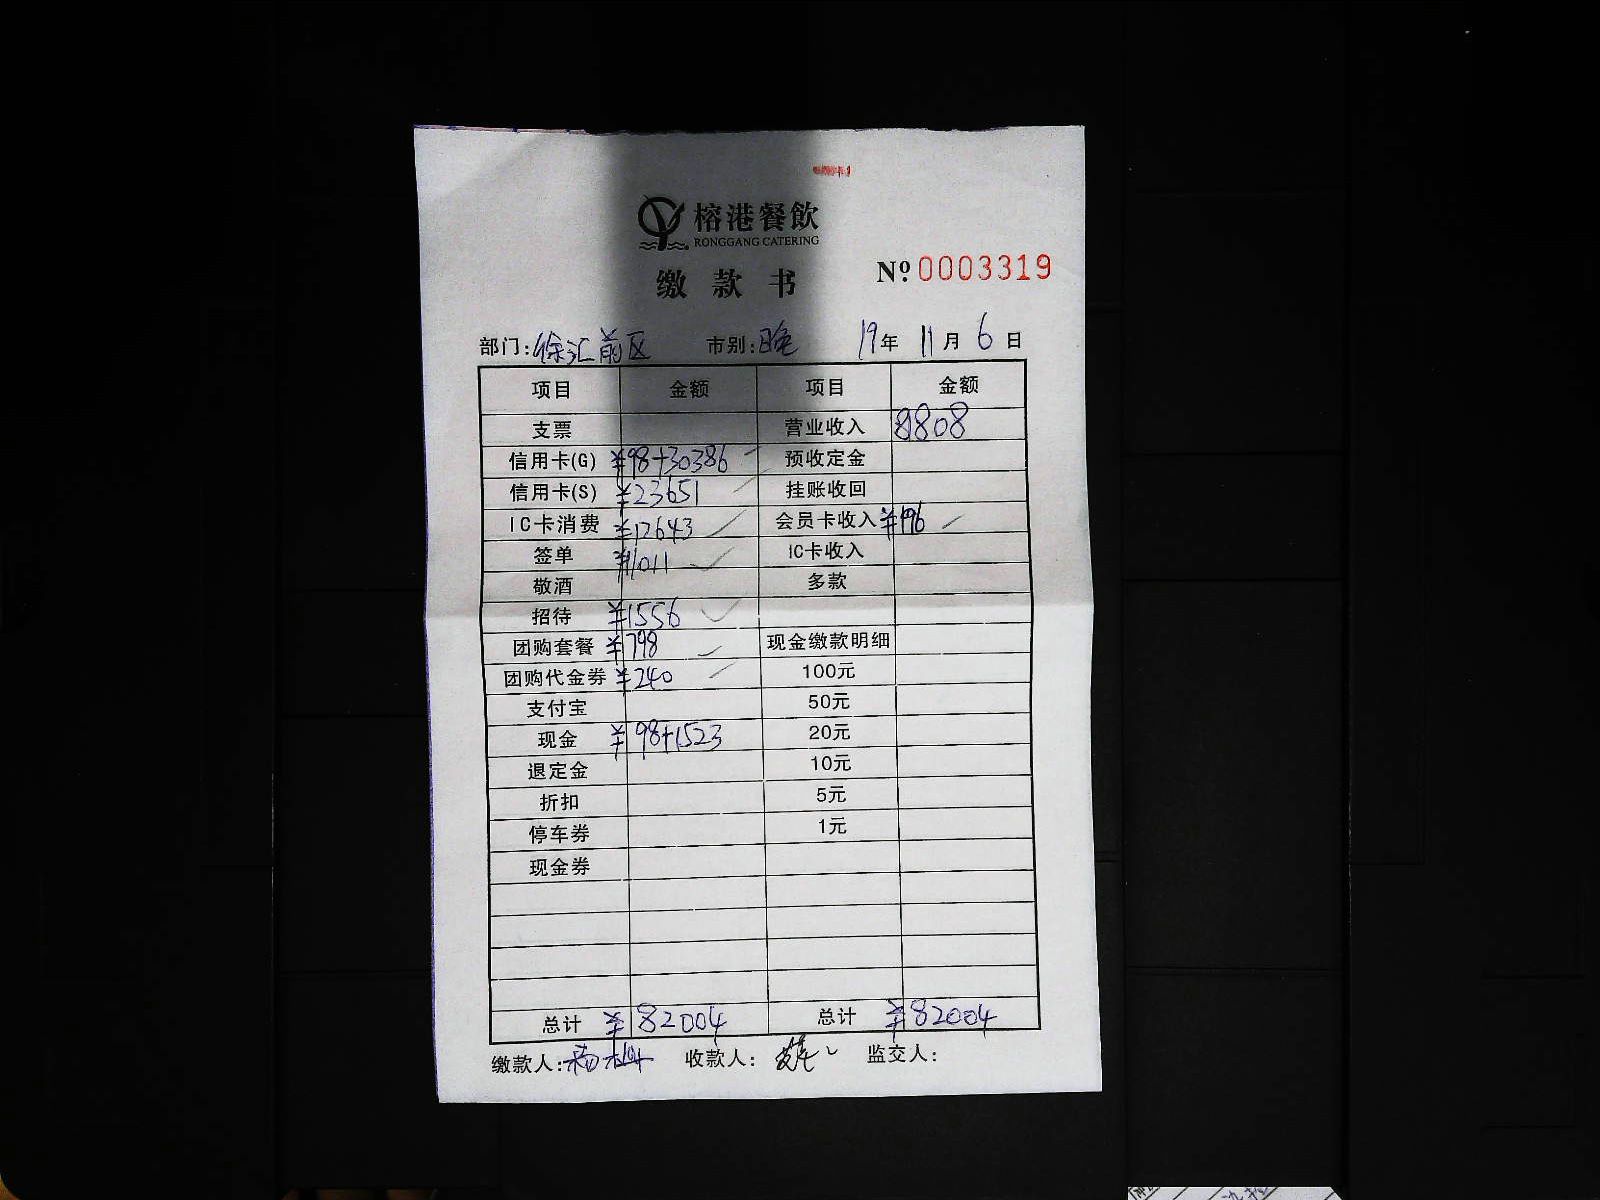 榕港餐飲
RONGGANG CATERING
缴款书
Nº 0003319
部门:徐汇前区 市别:晚 19年 11月 6日
项目 金额 项目 金额
支票 营业收入 81808
信用卡(G) ¥98+30386 预收定金
信用卡(S) ¥23651 挂账收回
IC卡消费 ¥12643 会员卡收入 ¥196
签单 ¥11011 IC卡收入
敬酒 多款
招待 ¥1556
团购套餐 ¥798 现金缴款明细
团购代金券 ¥240 100元
支付宝 50元
现金 ¥98+1523 20元
退定金 10元
折扣 5元
停车券 1元
现金券
总计 ¥82004 总计 ¥82004
缴款人: 收款人: 监交人: